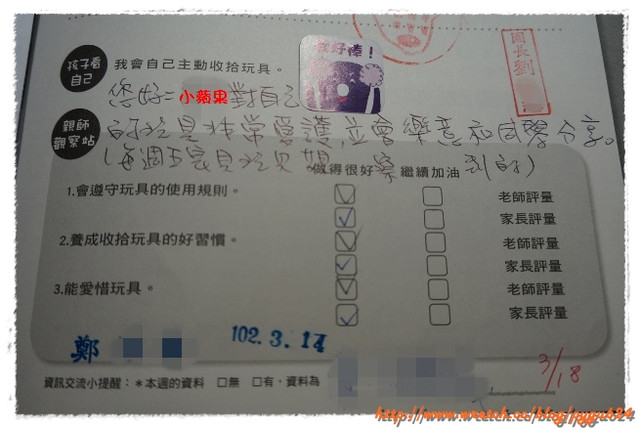 我好棒！
園長劉
孩子看自己
我會自己主動收拾玩具。
您好=小蘋果對自己
親師觀察站
的玩具非常愛護,並會樂意和同學分享。
(每週五家具玩具觀察到的)
做得很好 繼續加油
1.會遵守玩具的使用規則。 老師評量
家長評量
2.養成收拾玩具的好習慣。 老師評量
家長評量
3.能愛惜玩具。 老師評量
家長評量
鄭 102.3.14
3/18
資訊交流小提醒：＊本週的資料 □無 □有，資料為